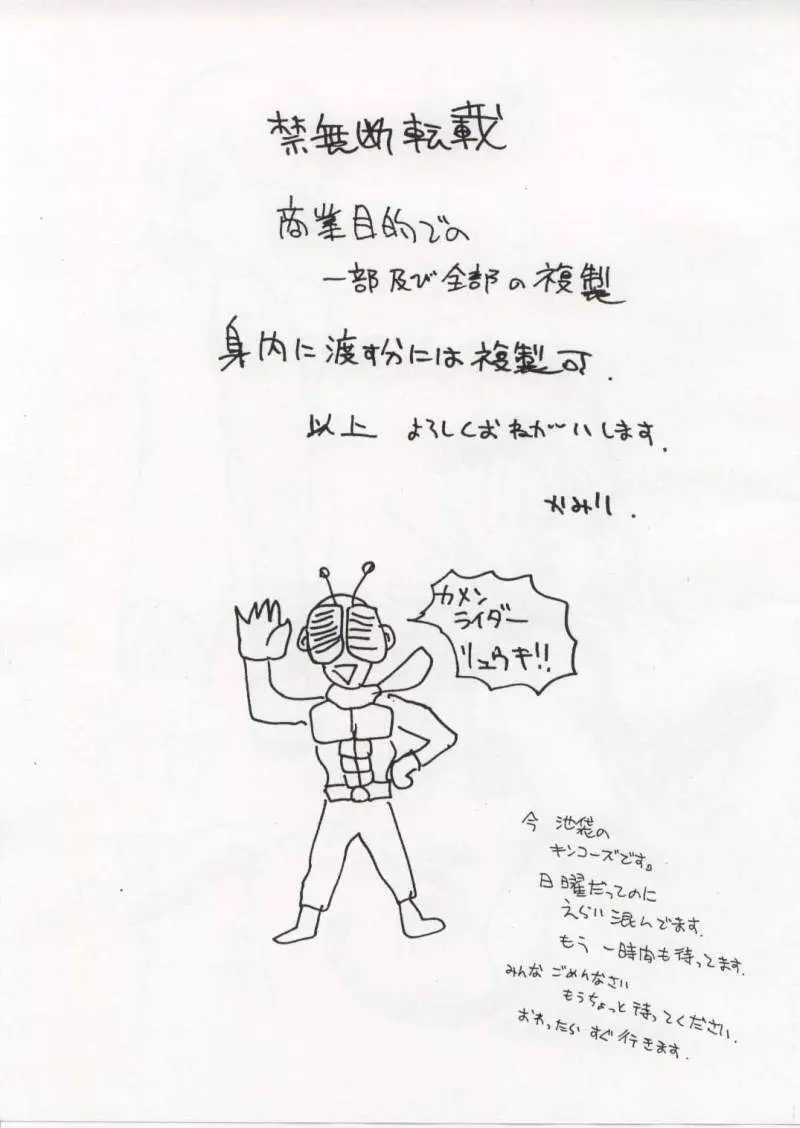 禁無断転載
商業目的での
一部及び全部の複製
身内に渡す分には複製可.
以上 よろしくおねがいします.
かみり.
カメン
ライダー
リュウキ!!
今 池袋の
キンコーズです。
日曜だってのに
えらい混んでます.
もう 一時間も待ってます.
みんな ごめんなさい
もうちょっと待ってください.
おわったら すぐ行きます.